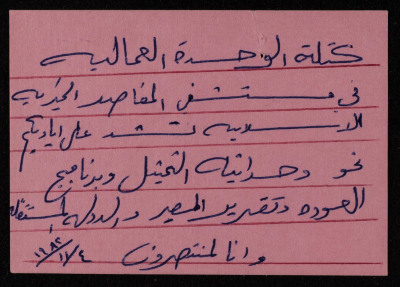 كتلة الوحدة العمالية
في مستشفى المقاصد الخيرية
الاسلامية تشد على اياديكم
نحو وحدانية التمثيل وبرنامج
العوده وتقرير المصير والدولة المستقلة
وانا لمنتصرون
١٩٨٢/١١/٤